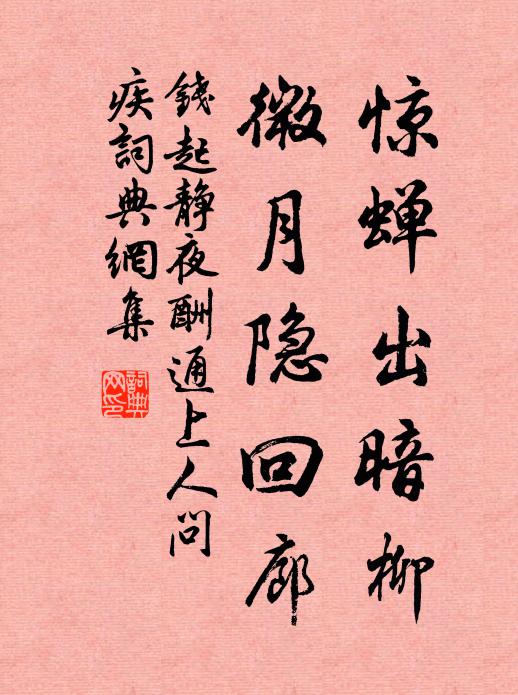 惊蝉出暗柳
微月隐回廊
錢起静夜酬通上人問
疾詞典網集
詞典
网印